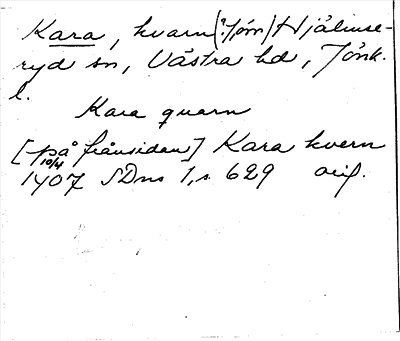 Kara, kvarn (?Jörn) Hjälmse-
ryd sn, Västra hd, Jönk.
l.
Kara quarn
[på frånsidan] Kara kvern
10/4
1407 SDns 1, s. 629 orig.